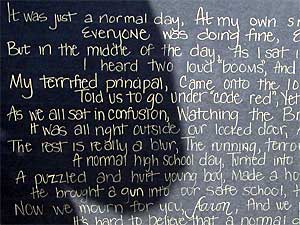 It was just a normal day, At my own s
Everyone was doing fine, E
But in the middle of the day, As I sat i
I heard two loud "booms", And
My terrified principal, Came onto the lo
Told us to go under "code red", Yet
As we all sat in confusion, Watching the Br
It was all right outside our locked door,
The rest is really a blur, The running, terro
A normal high school day, Turned into
A puzzled and hurt young boy, Made a ho
He brought a gun into our safe school,
Now we mourn for you, Aaron, And we
It's hard to believe that a normal d